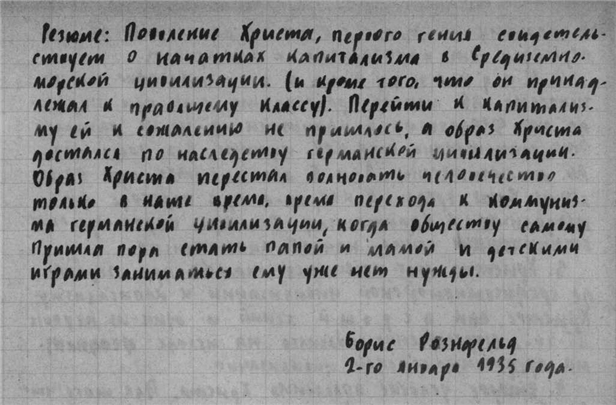 Резюме: Появление Христа, первого гения свидетель-
ствует о начатках капитализма в Средиземно-
морской цивилизации. (и кроме того, что он принад-
лежал к правящему классу). Перейти к капитализ-
му ей к сожалению не пришлось, а образ Христа
достался по наследству германской цивилизации.
Образ Христа перестал волновать человечество
только в наше время, время перехода к коммуниз-
ма германской цивилизации, когда обществу самому
пришла пора стать папой и мамой и детскими
играми заниматься ему уже нет нужды.
Борис Розенфельд
2-го января 1935 года.